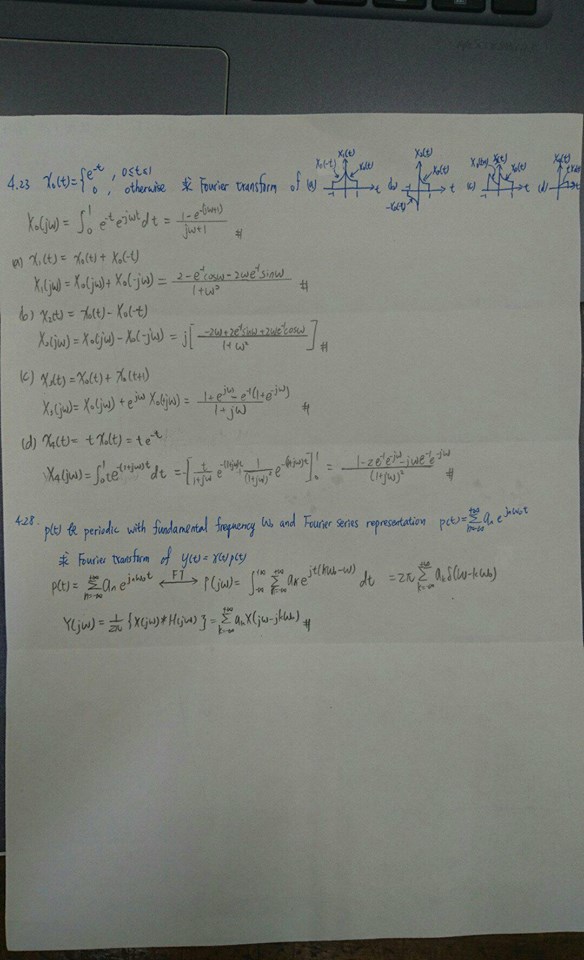 4.23 x₀(t)={e^-t , 0≤t≤1
0 , otherwise 求 Fourier transform of (a) (b) (c) (d)
x₀(-t) x₁(t) x₀(t) -1 1 t
x₂(t) x₀(t) -x₀(-t) -1 1 t
x₀(t+1) x₃(t) x₀(t) -1 1 t
x₄(t) t
X₀(jω) = ∫₀¹ e^-t e^-jωt dt = (1-e^-(jω+1))/(jω+1) #
(a) x₁(t) = x₀(t) + x₀(-t)
X₁(jω) = X₀(jω) + X₀(-jω) = (2-2e^-1cosω-2ωe^-1sinω)/(1+ω²) #
(b) x₂(t) = x₀(t) - x₀(-t)
X₂(jω) = X₀(jω) - X₀(-jω) = j[(-2ω+2e^-1sinω+2ωe^-1cosω)/(1+ω²)] #
(c) x₃(t) = x₀(t) + x₀(t+1)
X₃(jω) = X₀(jω) + e^jω X₀(jω) = (1+e^jω-e^-1(1+e^-jω))/(1+jω) #
(d) x₄(t) = t x₀(t) = t e^-t
X₄(jω) = ∫₀¹ t e^-(1+jω)t dt = -[t/(1+jω) e^-(1+jω)t 1/(1+jω)² e^-(1+jω)t]₀¹ = (1-2e^-1e^-jω-jωe^-1e^-jω)/(1+jω)² #
4.28. p(t) be periodic with fundamental frequency ω₀ and Fourier series representation p(t)=∑_{n=-∞}^{+∞} aₙ e^jnω₀t
求 Fourier transform of y(t)=x(t)p(t)
p(t) = ∑_{n=-∞}^{+∞} aₙ e^jnω₀t ⟷FT P(jω) = ∫_{-∞}^{+∞} ∑_{k=-∞}^{+∞} aₖ e^jt(kω₀-ω) dt = 2π ∑_{k=-∞}^{+∞} aₖ δ(ω-kω₀)
Y(jω) = 1/2π {X(jω)*H(jω)} = ∑_{k=-∞}^{+∞} aₖX(jω-jkω₀) #